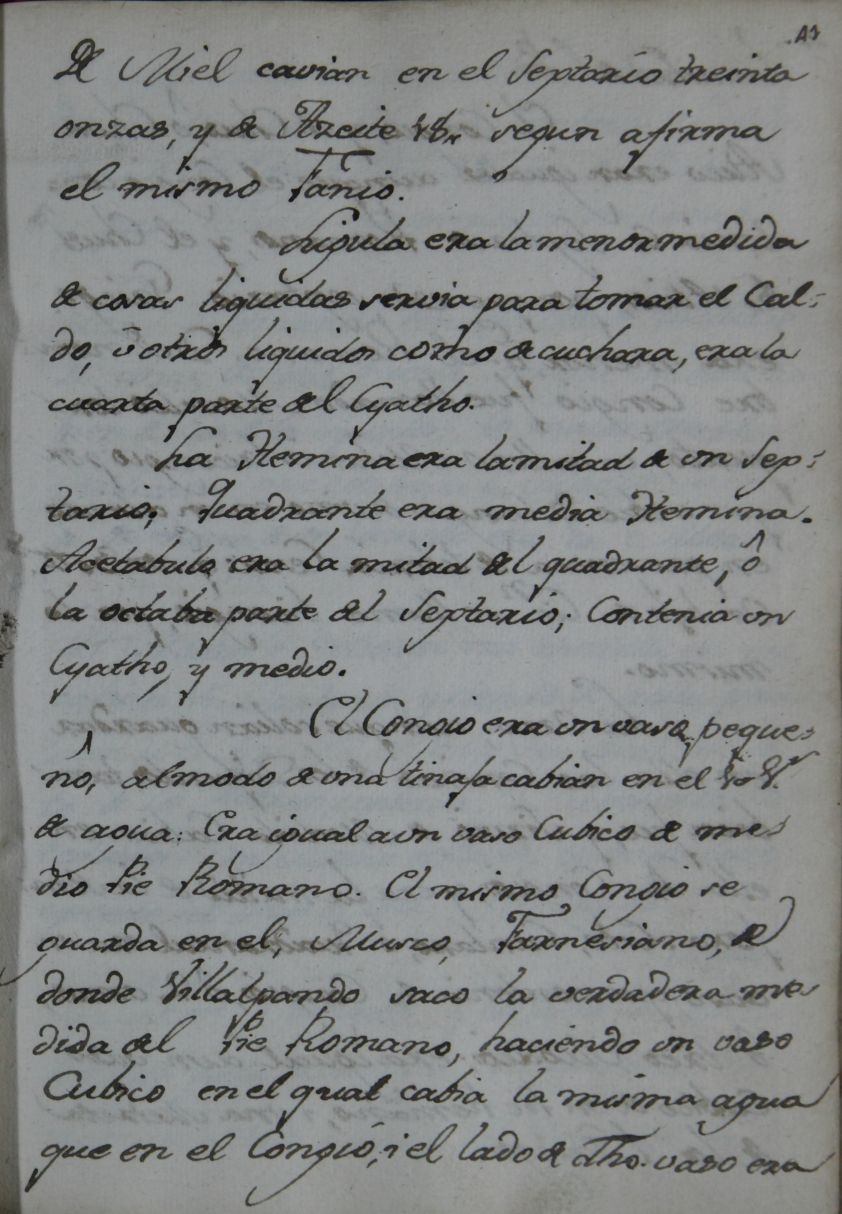 43
De Miel cavian en el Septario treinta
onzas, y de Azeite 18,, segun afirma
el mismo Fanio.
Ligula era la menor medida
de cosas liquidas servia para tomar el Cal-
do, ù otros liquidos como de cuchara, era la
cuarta parte del Cyatho.
La Hemina era la mitad de un Sep-
tario; Quadrante era media Hemina.
Acetabulo era la mitad del quadrante, ô
la octaba parte del Septario; Contenia un
Cyatho, y medio.
El Congio era un vaso peque-
ño, al modo de una tinaja cabian en el
de agua: Era igual a un vaso Cubico de me-
dio Pie Romano. El mismo Congio se
guarda en el, Museo, Farnesiano, de
donde Villalpando saco la verdadera me-
dida del Pie Romano, haciendo un vaso
Cubico en el qual cabia la misma agua
que en el Congio, i el lado de dho. vaso era